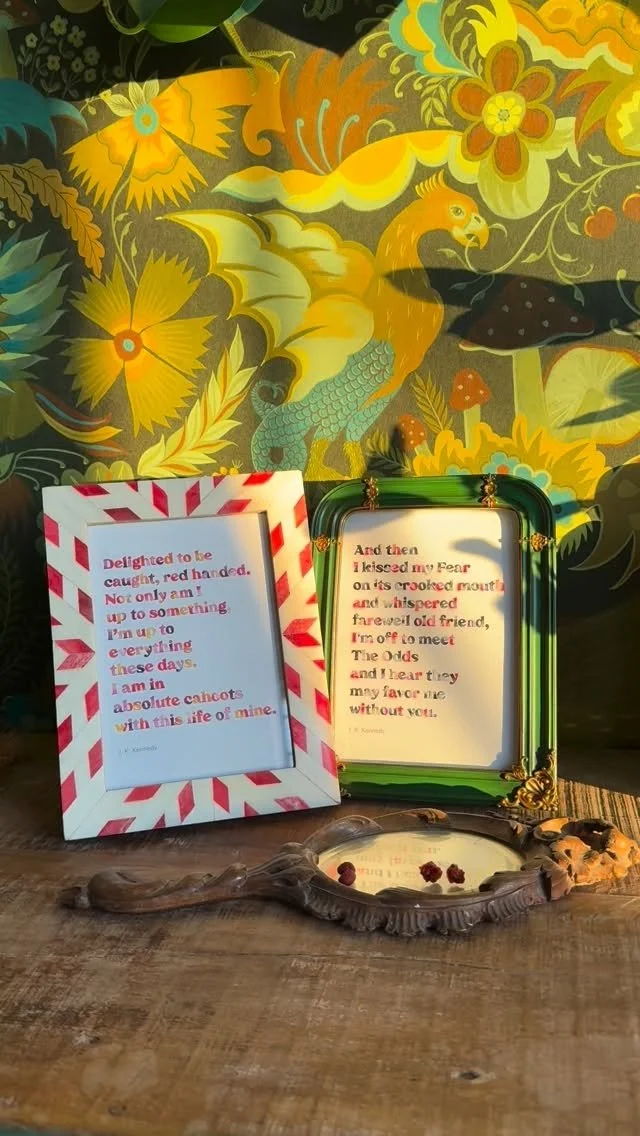 Delighted to be
caught, red handed.
Not only am I
up to something,
I'm up to
everything
these days.
I am in
absolute cahoots
with this life of mine.
J. R. Kennedy
And then
I kissed my Fear
on its crooked mouth
and whispered
farewell old friend,
I'm off to meet
The Odds
and I hear they
may favor me
without you.
J. R. Kennedy